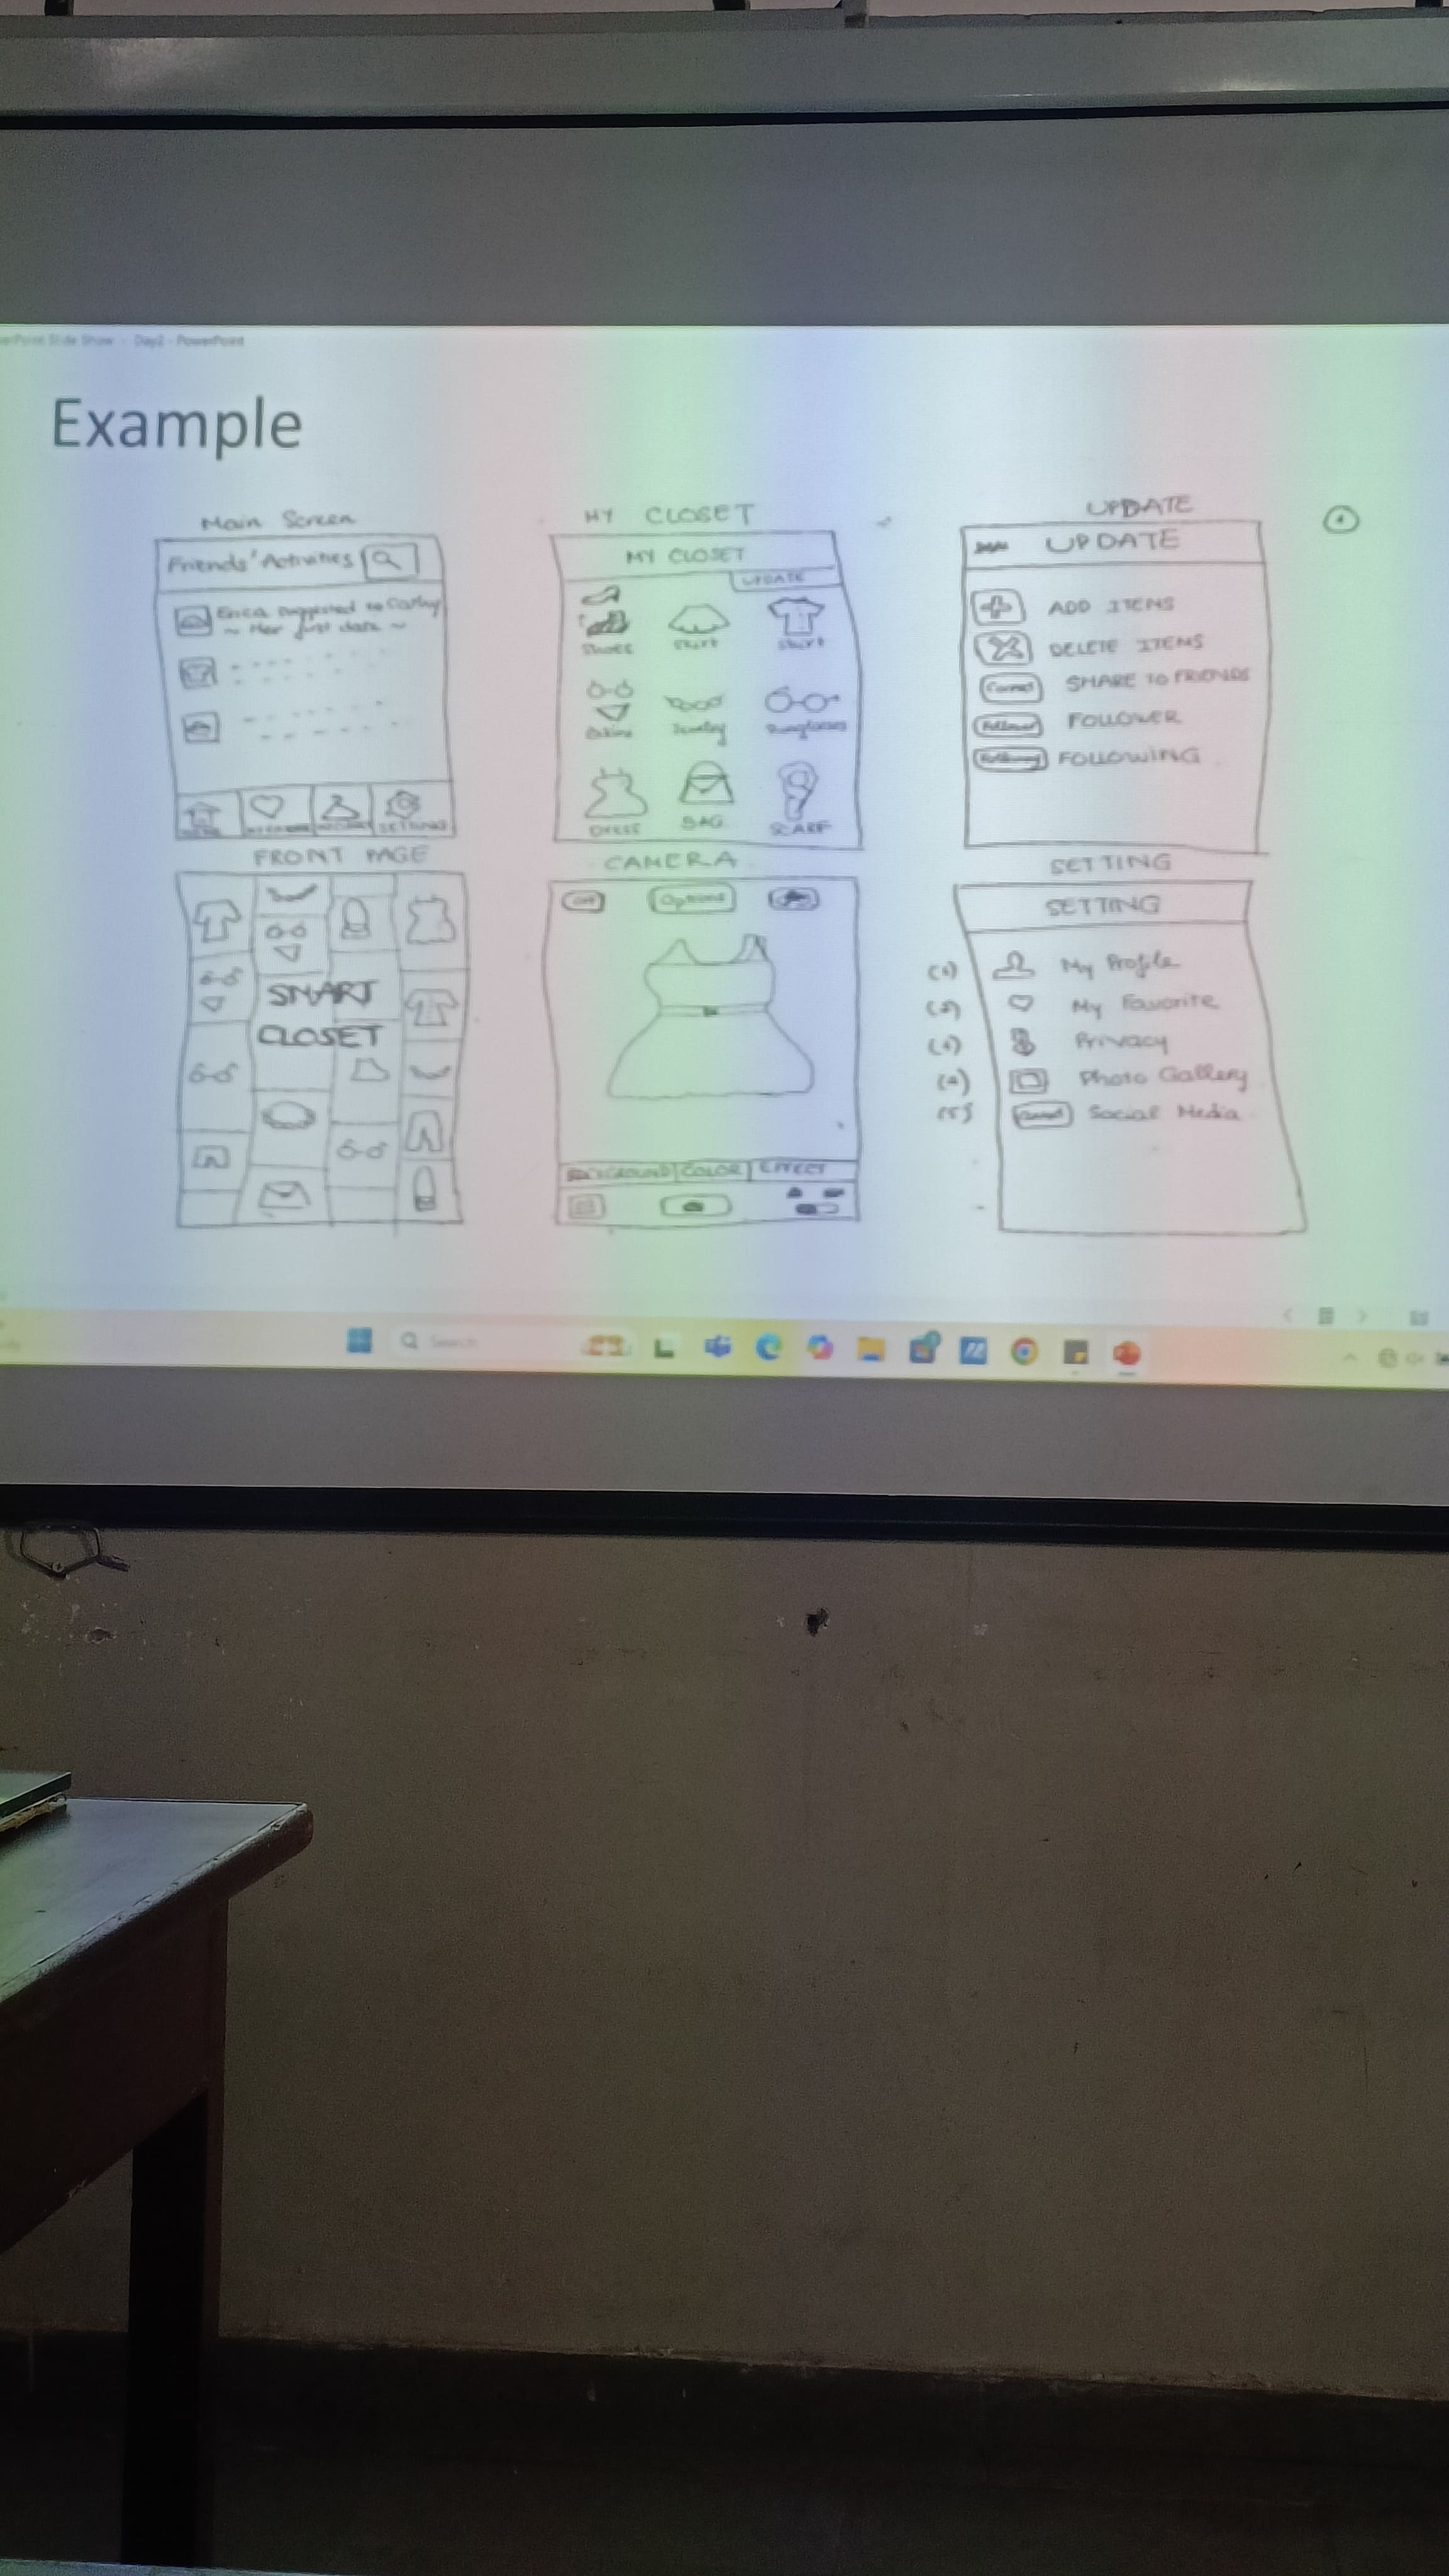 PowerPoint Slide Show - Day2 - PowerPoint
Example
Main Screen
Friends' Activities
Erica suggested to Cathy
~ Her first date ~
SETTINGS
MY CLOSET
MY CLOSET
UPDATE
Shoes Skirt Shirt
Bikini Jewelry Sunglasses
DRESS BAG SCARF
UPDATE
UPDATE
ADD ITEMS
DELETE ITEMS
SHARE TO FRIENDS
Follower FOLLOWER
Following FOLLOWING
FRONT PAGE
SMART
CLOSET
CAMERA
Off Options
BACKGROUND COLOR EFFECT
SETTING
SETTING
My Profile
My Favorite
Privacy
Photo Gallery
(5) Social Media
Search